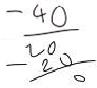 -40
20
-20
0